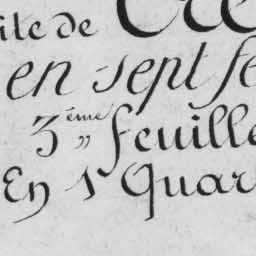 ite de Cre
en sept fe
3ème feuille
En 1 Quar